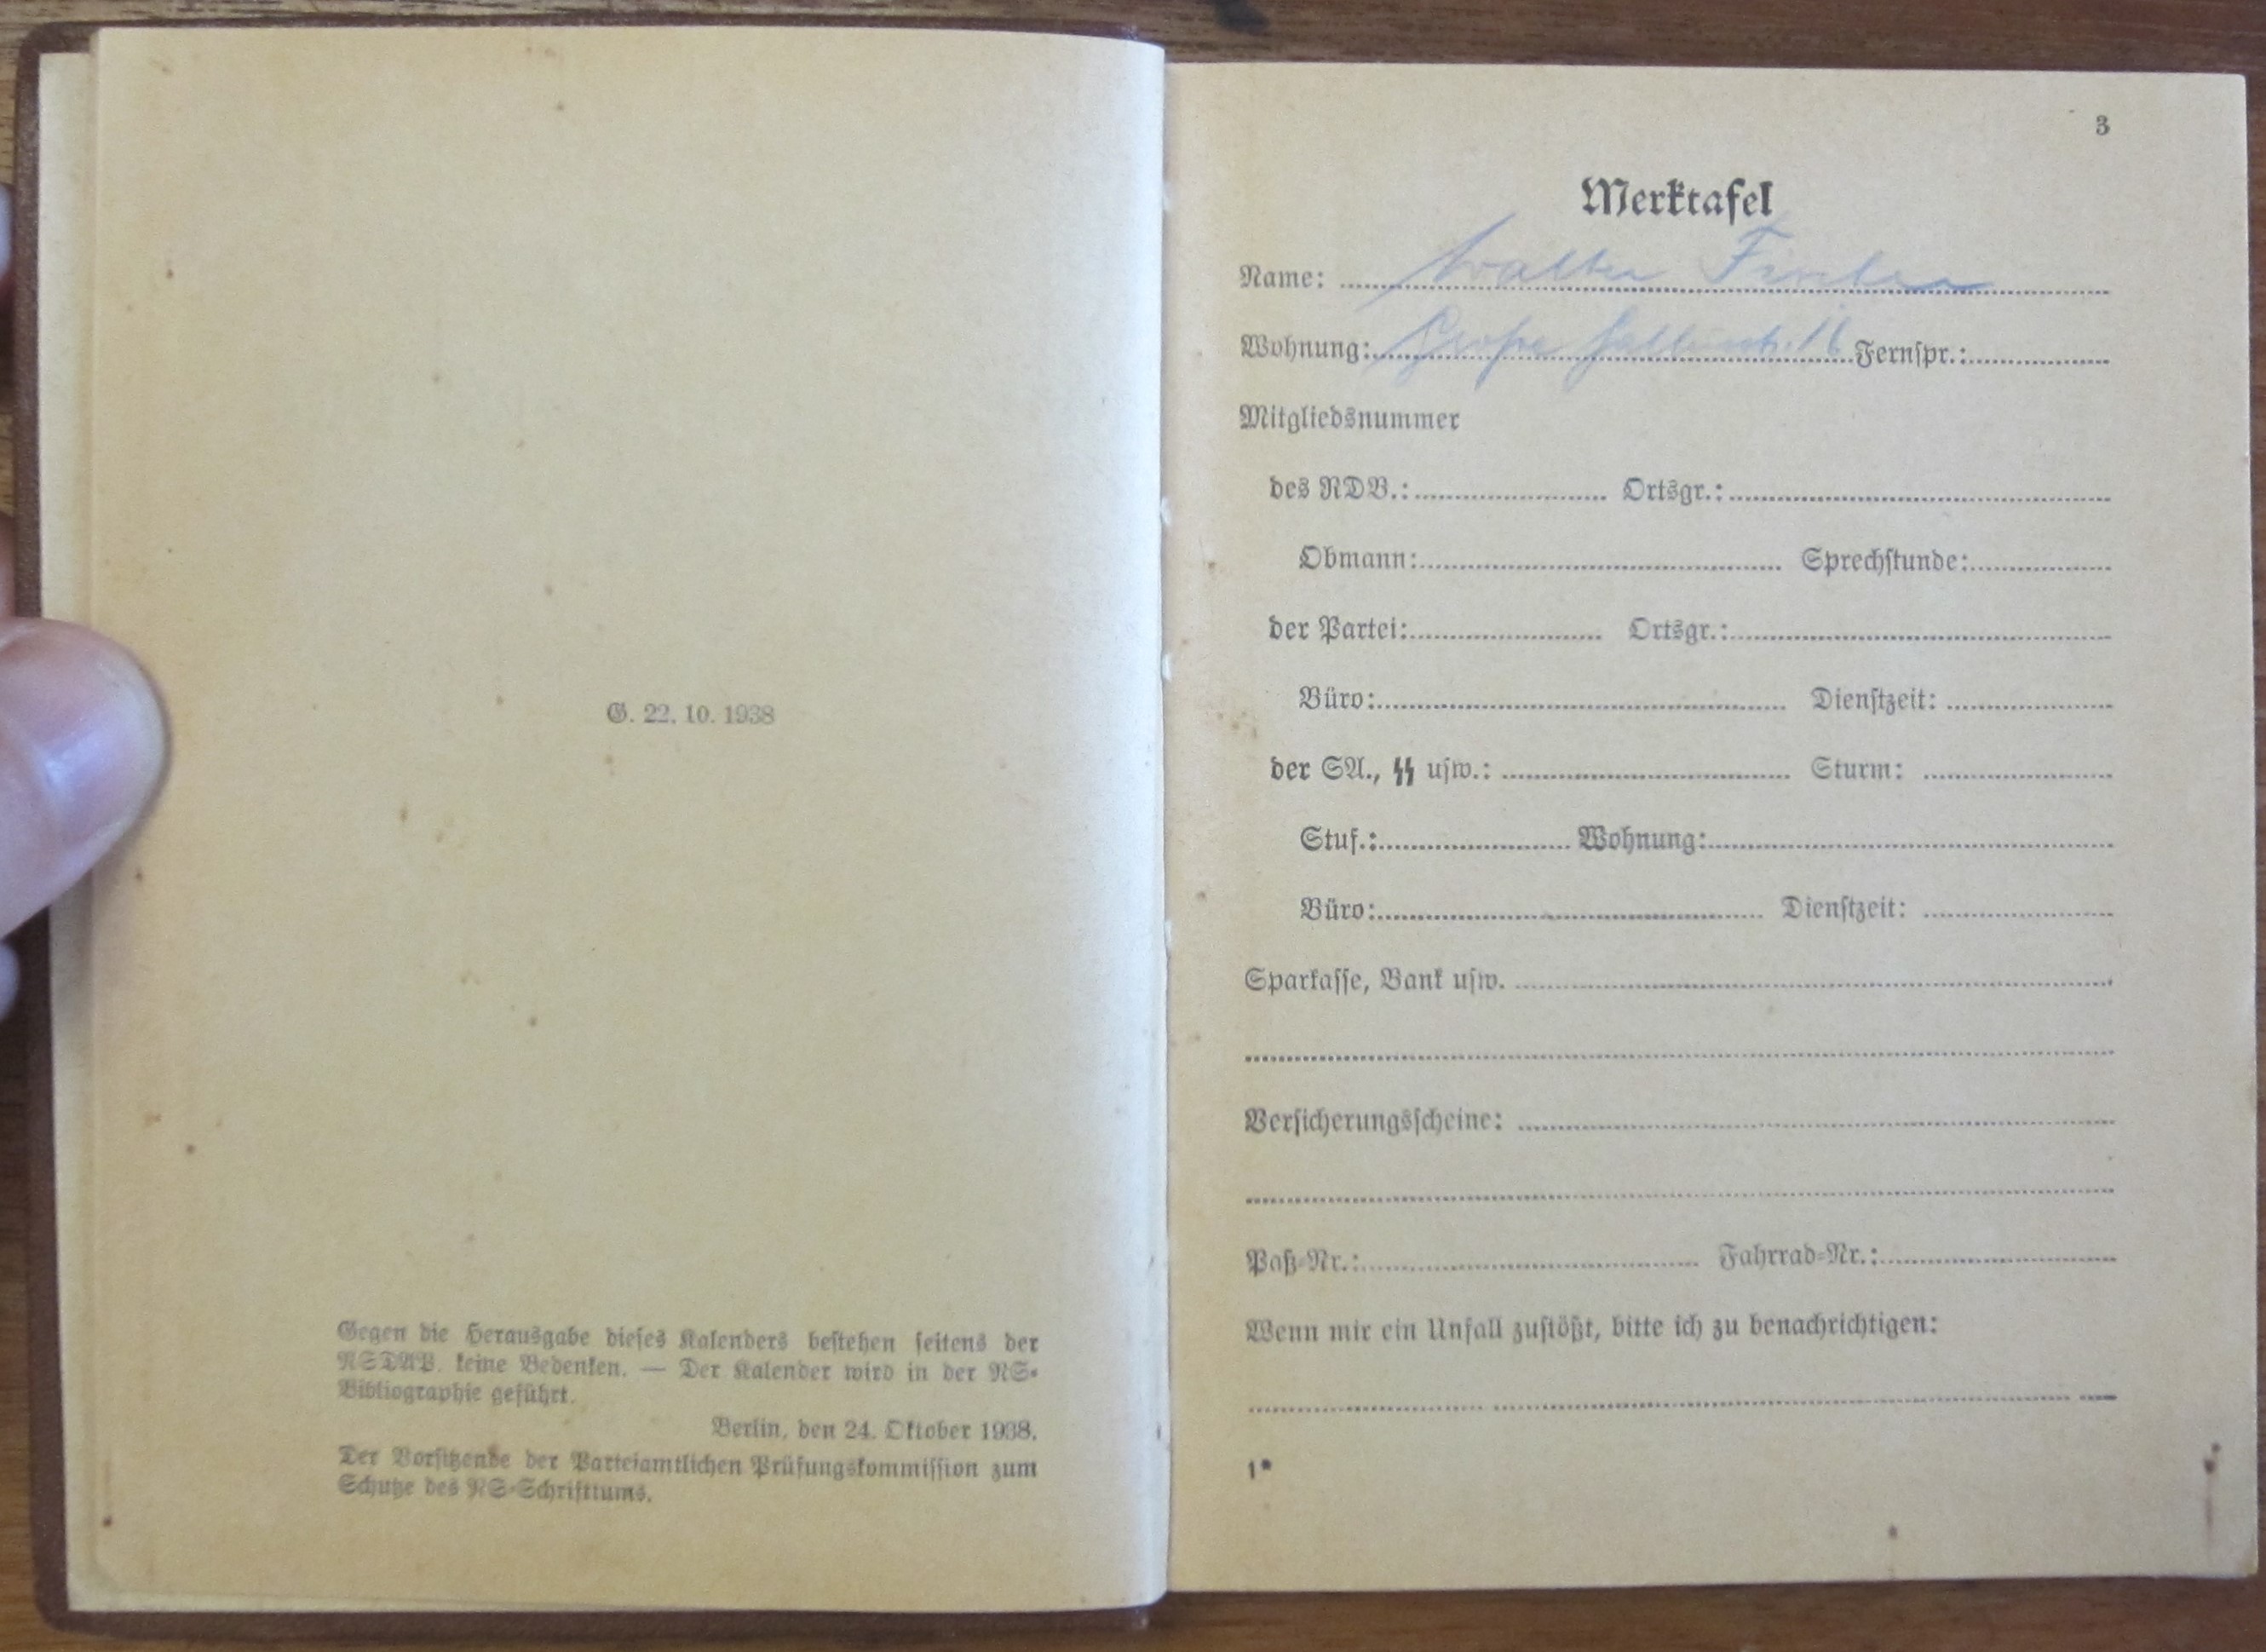 G. 22. 10. 1938
Gegen die Herausgabe dieses Kalenders bestehen seitens der
NSDAP. keine Bedenken. — Der Kalender wird in der NS-
Bibliographie geführt.
Berlin, den 24. Oktober 1938.
Der Vorsitzende der Parteiamtlichen Prüfungskommission zum
Schutze des NS-Schrifttums.
3
Merktafel
Name: Walter
Wohnung: Große 16 Fernspr.:
Mitgliedsnummer
des RDB.: Ortsgr.:
Obmann: Sprechstunde:
der Partei: Ortsgr.:
Büro: Dienstzeit:
der SA., SS usw.: Sturm:
Stuf.: Wohnung:
Büro: Dienstzeit:
Sparkasse, Bank usw.
Versicherungsscheine:
Paß-Nr.: Fahrrad-Nr.:
Wenn mir ein Unfall zustößt, bitte ich zu benachrichtigen:
1*